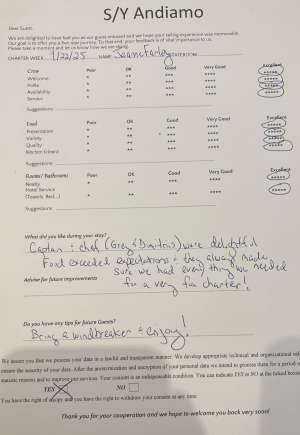 S/Y Andiamo
Dear Guest,
We are delighted to have had you as our guests onboard and we hope your sailing experience was memorable.
Our goal is to offer you a five star journey. To that end, your feedback is of vital importance to us.
Please take a moment and let us know how we are doing.
CHARTER WEEK 9/22/25 NAME STATEROOM
Crew Poor OK Good Very Good Excellent
Welcome * ** *** **** *****
Smile * ** *** **** *****
Availability * ** *** **** *****
Service * ** *** **** *****
Suggestions
Food Poor OK Good Very Good Excellent
Presentation * ** *** **** *****
Variety * ** *** **** *****
Quality * ** *** **** *****
Kitchen (clean) * ** *** **** *****
Suggestions
Rooms / Bathrooms Poor OK Good Very Good Excellent
Neatly * ** *** **** *****
Hotel Service
(Towels, Bed,..) * ** *** **** *****
Suggestions
What did you like during your stay?
Captain & chef (Greg & Dimitrios) were delightful
Food exceeded expectations & they always made
Sure we had everything we needed
Advise for future improvements
for a very fun charter!
Do you have any tips for future Guests?
Bring a windbreaker & enjoy!
We assure you that we process your data in a lawful and transparent manner. We develop appropriate technical and organizational
ensure the security of your data. After the anonymization and encryption of your personal data we intend to process them for a period
statistic reasons and to improve our services. Your consent is an indispensable condition. You can indicate YES or NO at the
YES NO
You have the right of access and you have the right to withdraw your consent at any time.
Thank you for your cooperation and we hope to welcome you back very soon!